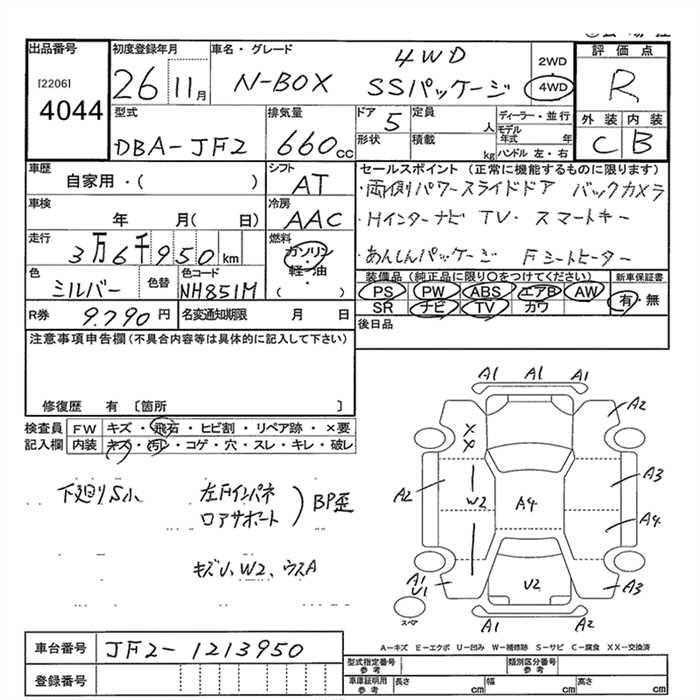 出品番号
[2206]
4044
初度登録年月
26 11月
車名・グレード
N-BOX
4WD
SSパッケージ
2WD
4WD
評価点
R
外装 内装
C B
型式
DBA-JF2
排気量
660cc
ドア
5
定員
人
形状
積載
kg
ディーラー・並行
モデル年式 年
ハンドル 左・右
車歴
自家用・( )
シフト
AT
車検
年 月( 日)
冷房
AAC
走行
3万6千950km
燃料
ガソリン
・
軽油
( )
色
シルバー
色替
色コード
NH851M
R券
9.790円
名変通知期限
月 日
セールスポイント (正常に機能するものに限ります)
・両側パワースライドドア バックカメラ
・Hインターナビ TV・スマートキー
・あんしんパッケージ Fシートヒーター
装備品(純正品に限り○をつけてください)
PS PW ABS エアB AW
SR ナビ TV カワ
新車保証書
有・無
後日品
注意事項申告欄(不具合内容等は具体的に記入して下さい)
修復歴 有 〔箇所 〕
検査員記入欄
FW キズ・飛石・ヒビ割・リペア跡・×要
内装 キズ・汚レ・コゲ・穴・スレ・キレ・破レ
下廻りS小
左Fインパネ
ロアサポート
BP歪
キズU、W2、ウスA
A1 A1 A1
A2
X
X
A2
W2
A4
A3
A4
A1
U1
U2
A3
A2 A2
スペア
A−キズ E−エクボ U−凹み W−補修跡 S−サビ C−腐食 XX−交換済
車台番号
JF2-1213950
登録番号
型式指定番号
参考
類別区分番号
参考
車庫証明用
参考
長さ cm
幅 cm
高さ cm